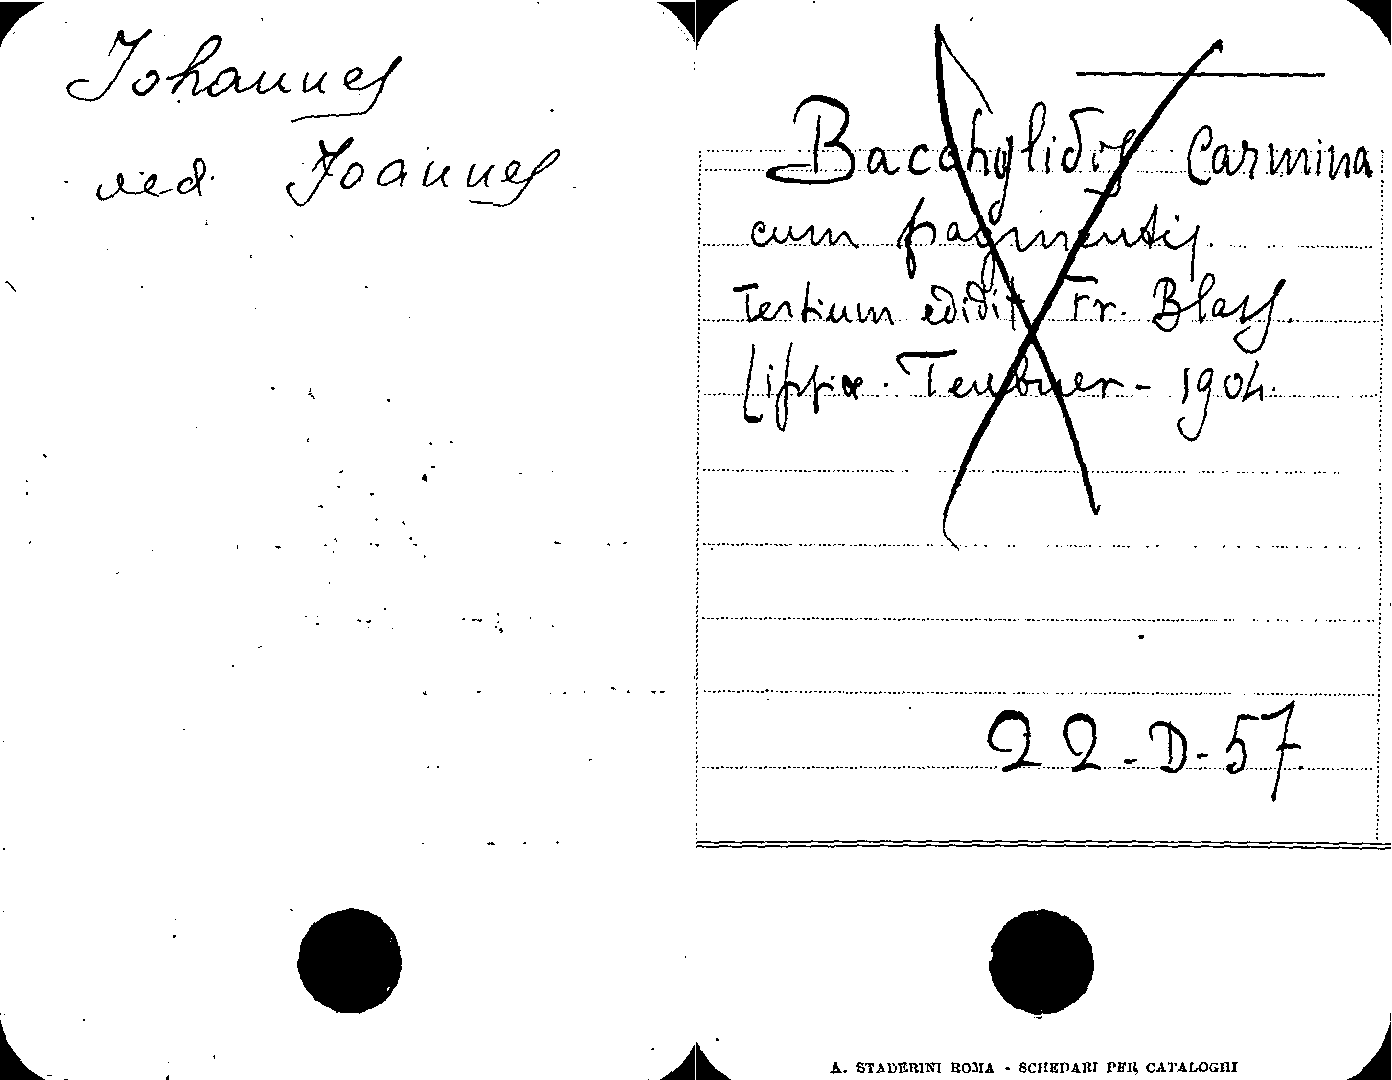 Johannes
ved. Joannes
Bacchylidis Carmina
cum fragmentis.
Tertium edidit Fr. Blass.
Lipsiæ. Teubner - 1904.
22-D-57.
A. STADERINI ROMA - SCHEDARI PER CATALOGHI